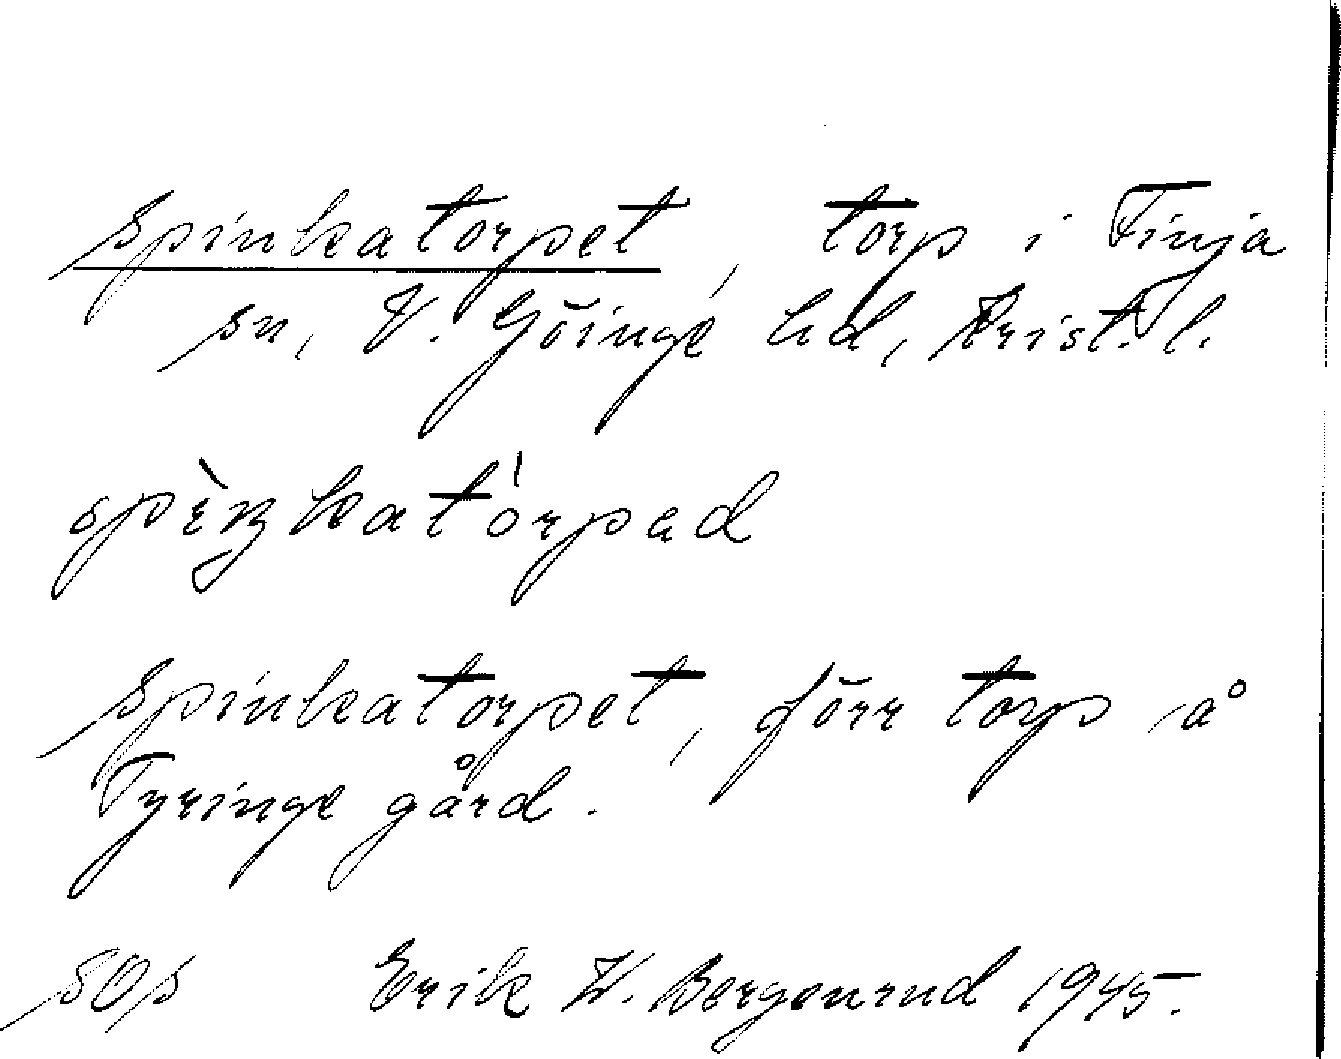 Spinkatorpet, torp i Finja
sn, V. Göinge hd, Krist. l.
spìŋkatórpəd
Spinkatorpet, förr torp å
Tyringe gård.
SOS Erik W. Bergenrud 1945.